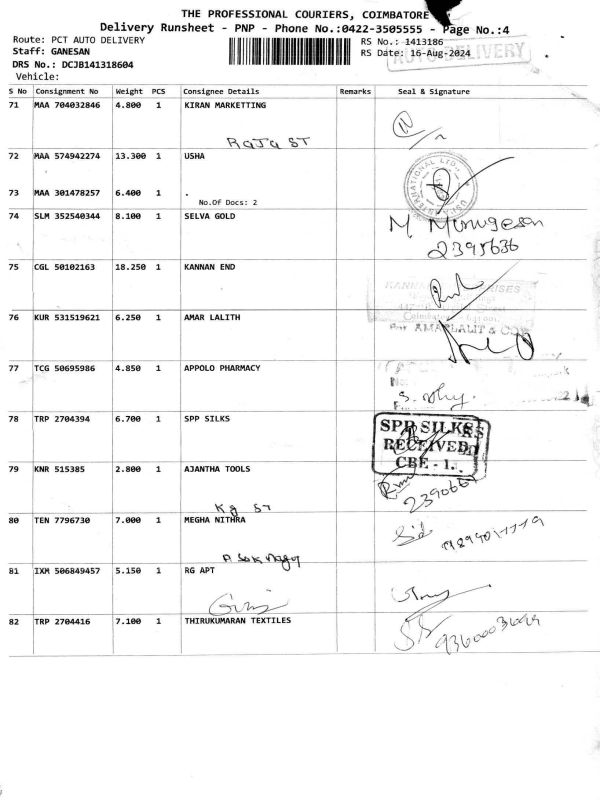 THE PROFESSIONAL COURIERS, COIMBATORE
Delivery Runsheet - PNP - Phone No.:0422-3505555 - Page No.:4
Route: PCT AUTO DELIVERY
RS No.: 1413186
Staff: GANESAN
RS Date: 16-Aug-2024
AUTO DELIVERY
DRS No.: DCJB141318604
Vehicle:
S No Consignment No Weight PCS Consignee Details Remarks Seal & Signature
71 MAA 704032846 4.800 1 KIRAN MARKETTING
Raja ST
72 MAA 574942274 13.300 1 USHA
73 MAA 301478257 6.400 1 .
No.Of Docs: 2
74 SLM 352540344 8.100 1 SELVA GOLD
M Murugesan
2395636
75 CGL 50102163 18.250 1 KANNAN END
76 KUR 531519621 6.250 1 AMAR LALITH
For AMARLALIT & CO
77 TCG 50695986 4.850 1 APPOLO PHARMACY
78 TRP 2704394 6.700 1 SPP SILKS
SPP SILKS
RECEIVED
CBE - 1.
79 KNR 515385 2.800 1 AJANTHA TOOLS
Kg ST
80 TEN 7796730 7.000 1 MEGHA NITHRA
81 IXM 506849457 5.150 1 RG APT
82 TRP 2704416 7.100 1 THIRUKUMARAN TEXTILES